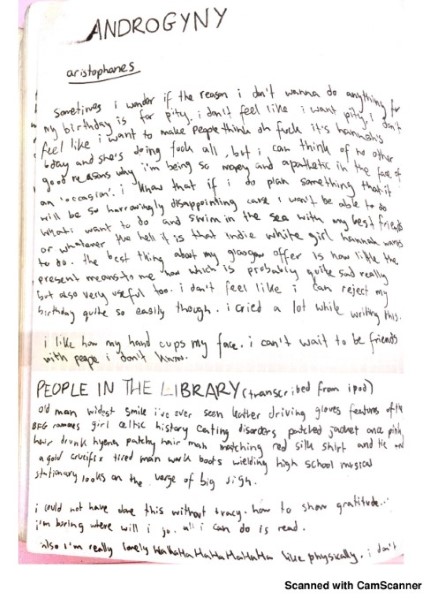 ANDROGYNY
aristophanes
sometimes i wonder if the reason i don't wanna do anything for
my birthday is for pity. i don't feel like i want pity, i don't
feel like i want to make people think oh fuck it's hannah's
bday and she's doing fuck all, but i can think of no other
good reasons why i'm being so mopey and apathetic in the face of
an 'occasion'. i know that if i do plan something that it
will be so harrowingly disappointing cause i won't be able to do
what i want to do and swim in the sea with my best friends
or whatever the hell it is that indie white girl hannah wants
to do. the best thing about my glasgow offer is how little the
present means to me now which is probably quite sad really
but also very useful too. i don't feel like i can reject my
birthday quite so easily though. i cried a lot while writing this.
i like how my hand cups my face. i can't wait to be friends
with people i don't know.
PEOPLE IN THE LIBRARY (transcribed from ipod)
old man widest smile i've ever seen leather driving gloves features of the
BFG girl celtic history eating disorders patched jacket once pink
hair drunk hyena patchy hair man matching red silk shirt and tie and
a gold crucifix tired man work boots wielding high school musical
stationary looks on the verge of big sigh.
i could not have done this without tracy. how to show gratitude...
i'm boring where will i go. all i can do is read.
also i'm really lonely HaHaHaHaHaHaHaHa like physically. i don't
Scanned with CamScanner